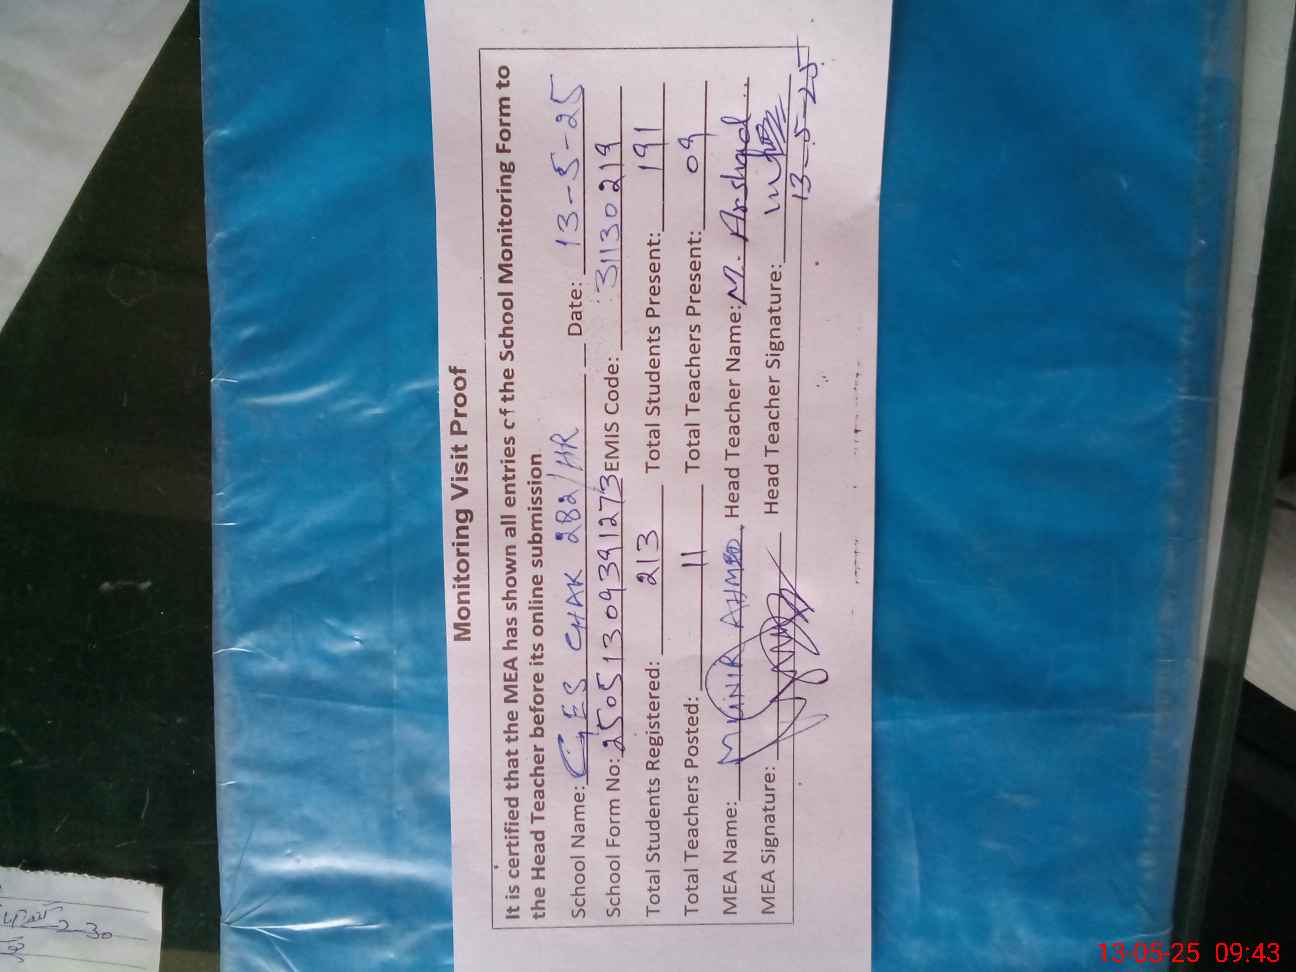 Monitoring Visit Proof
It is certified that the MEA has shown all entries of the School Monitoring Form to
the Head Teacher before its online submission.
School Name: GES CHAK 282/HR Date: 13-5-25
School Form No: 25051309391273 EMIS Code: 31130219
Total Students Registered: 213 Total Students Present: 191
Total Teachers Posted: 11 Total Teachers Present: 09
MEA Name: MUNIR AHMED Head Teacher Name: M. Arshad
MEA Signature: Head Teacher Signature:
13-5-25
2-30
13-05-25 09:43